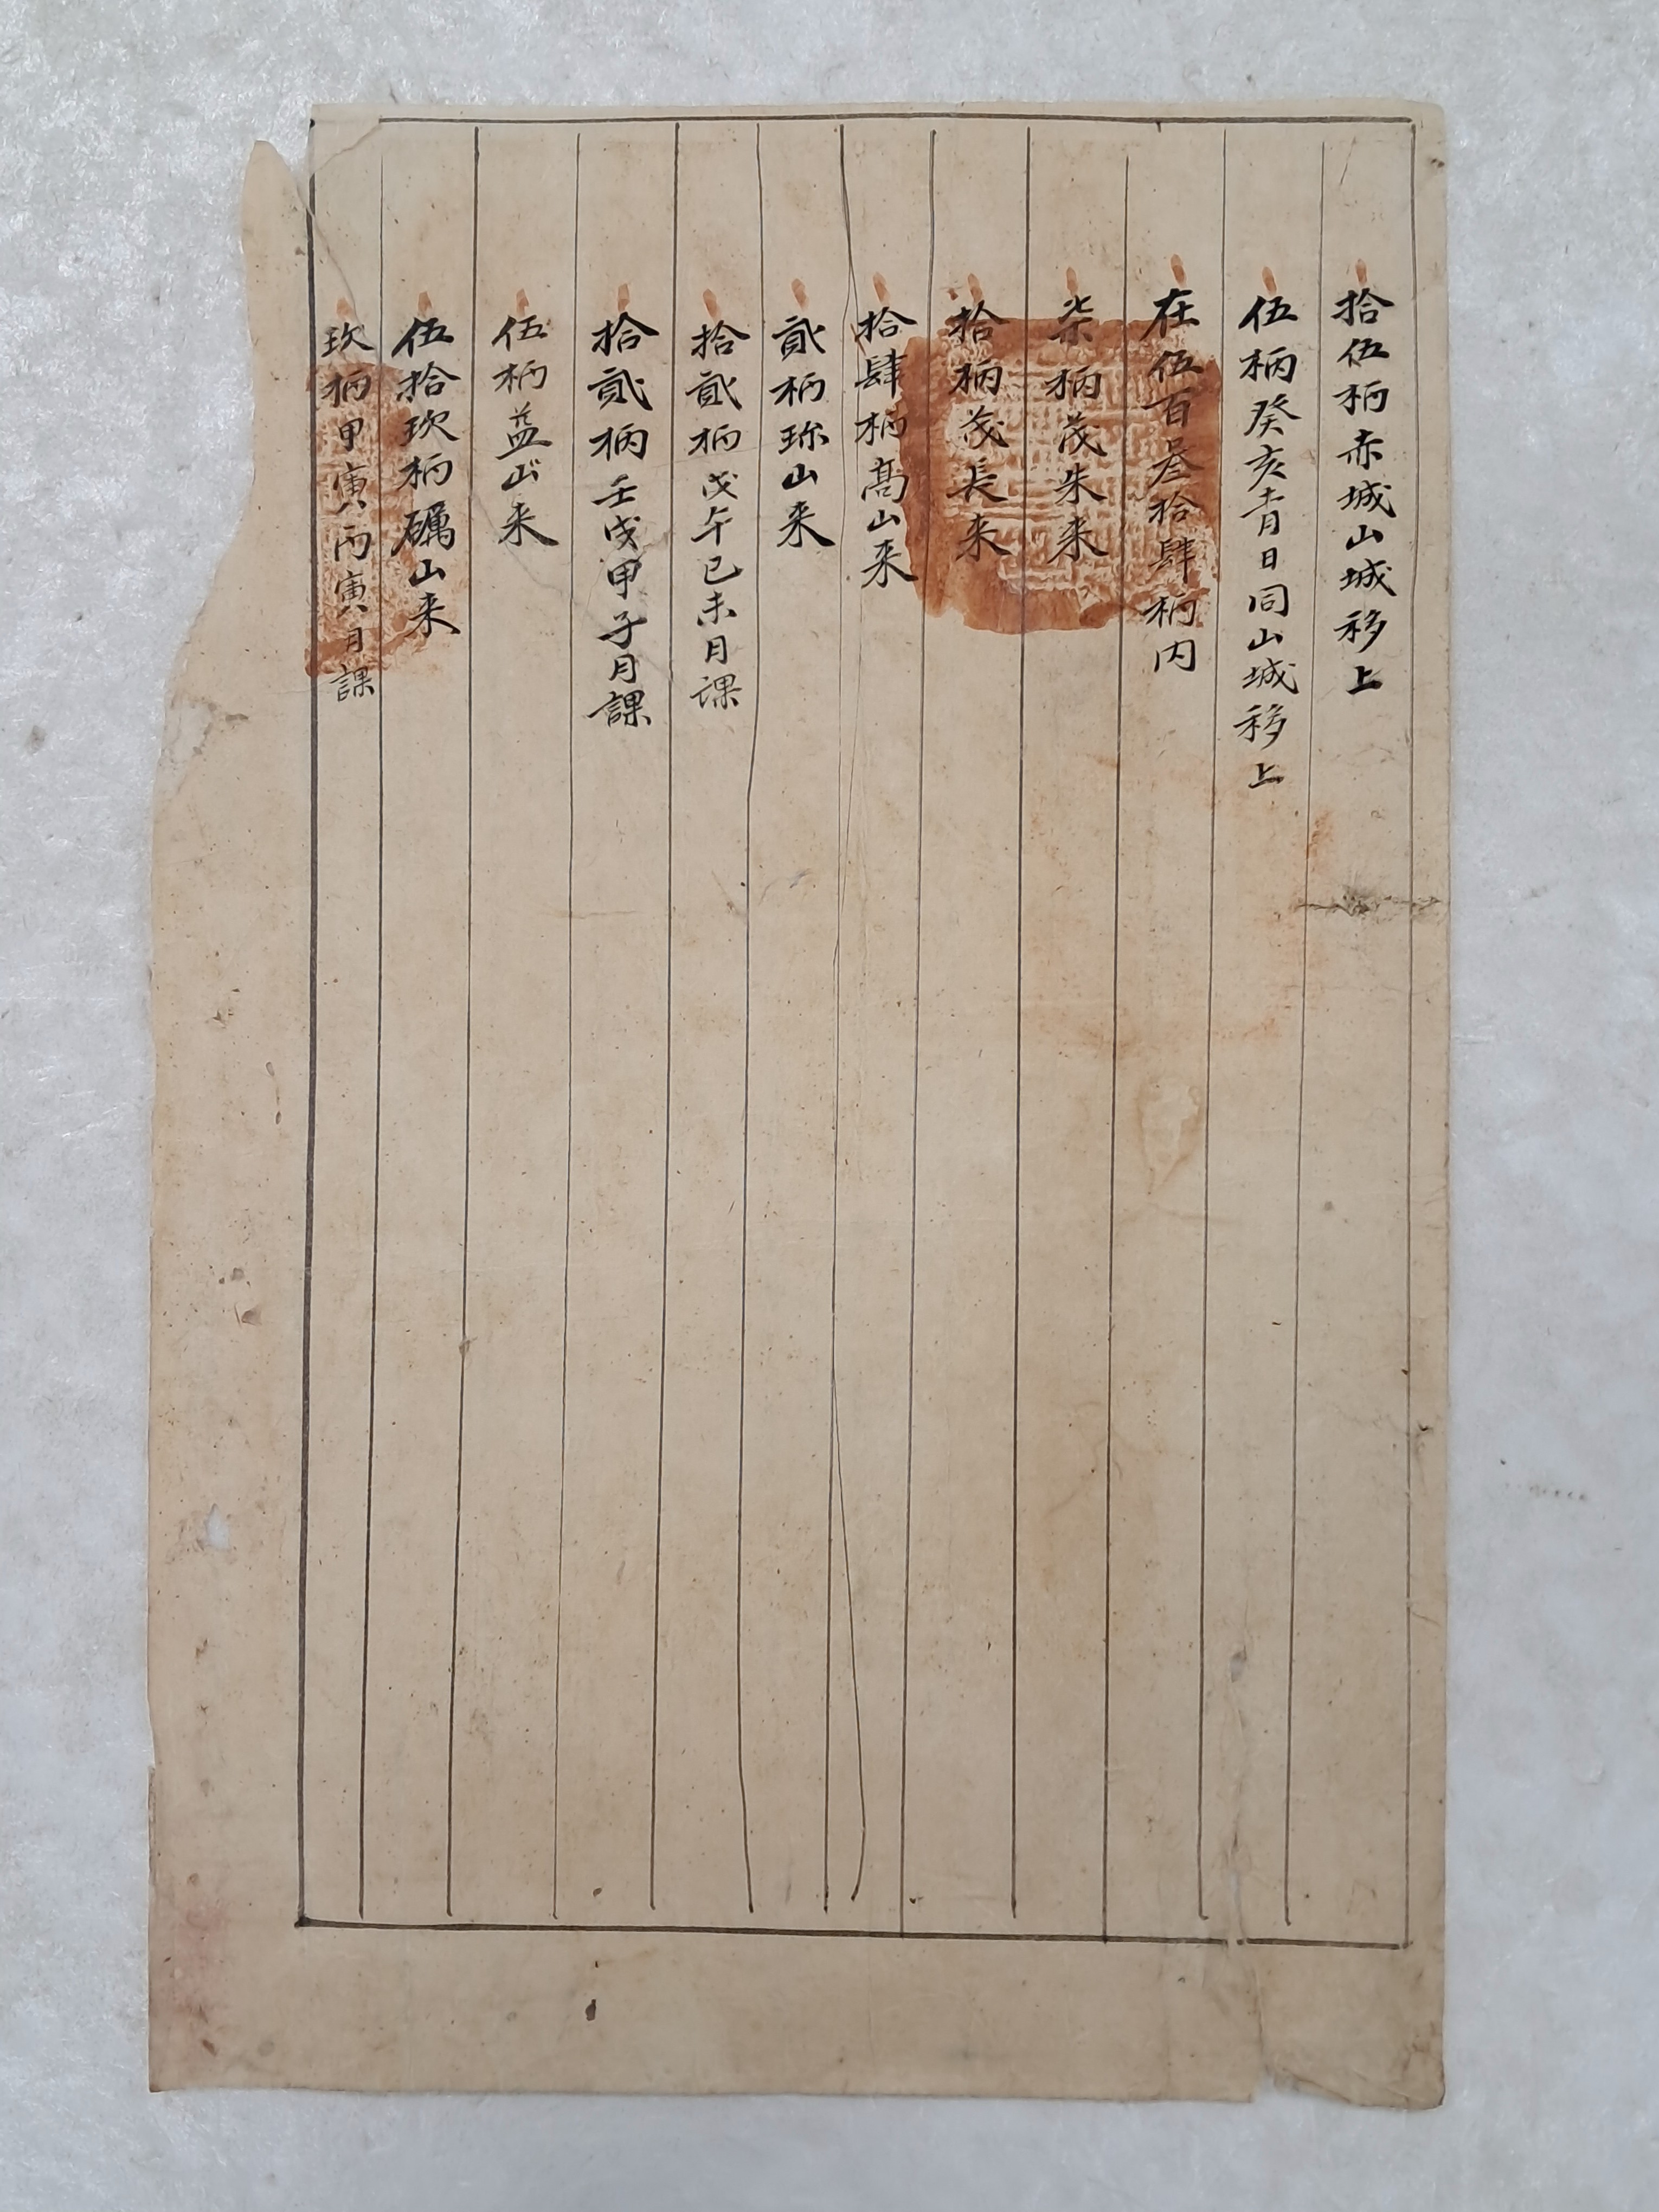 拾伍柄赤城山城移上
伍柄癸亥青日同山城移上
在伍百叄拾肆柄内
柒柄茂朱来
拾柄茂長来
拾肆柄髙山来
貳柄珎山来
拾貳柄戊午己未月課
拾貳柄壬戌甲子月課
伍柄益山来
伍拾玖柄礪山来
玖柄甲寅丙寅月課